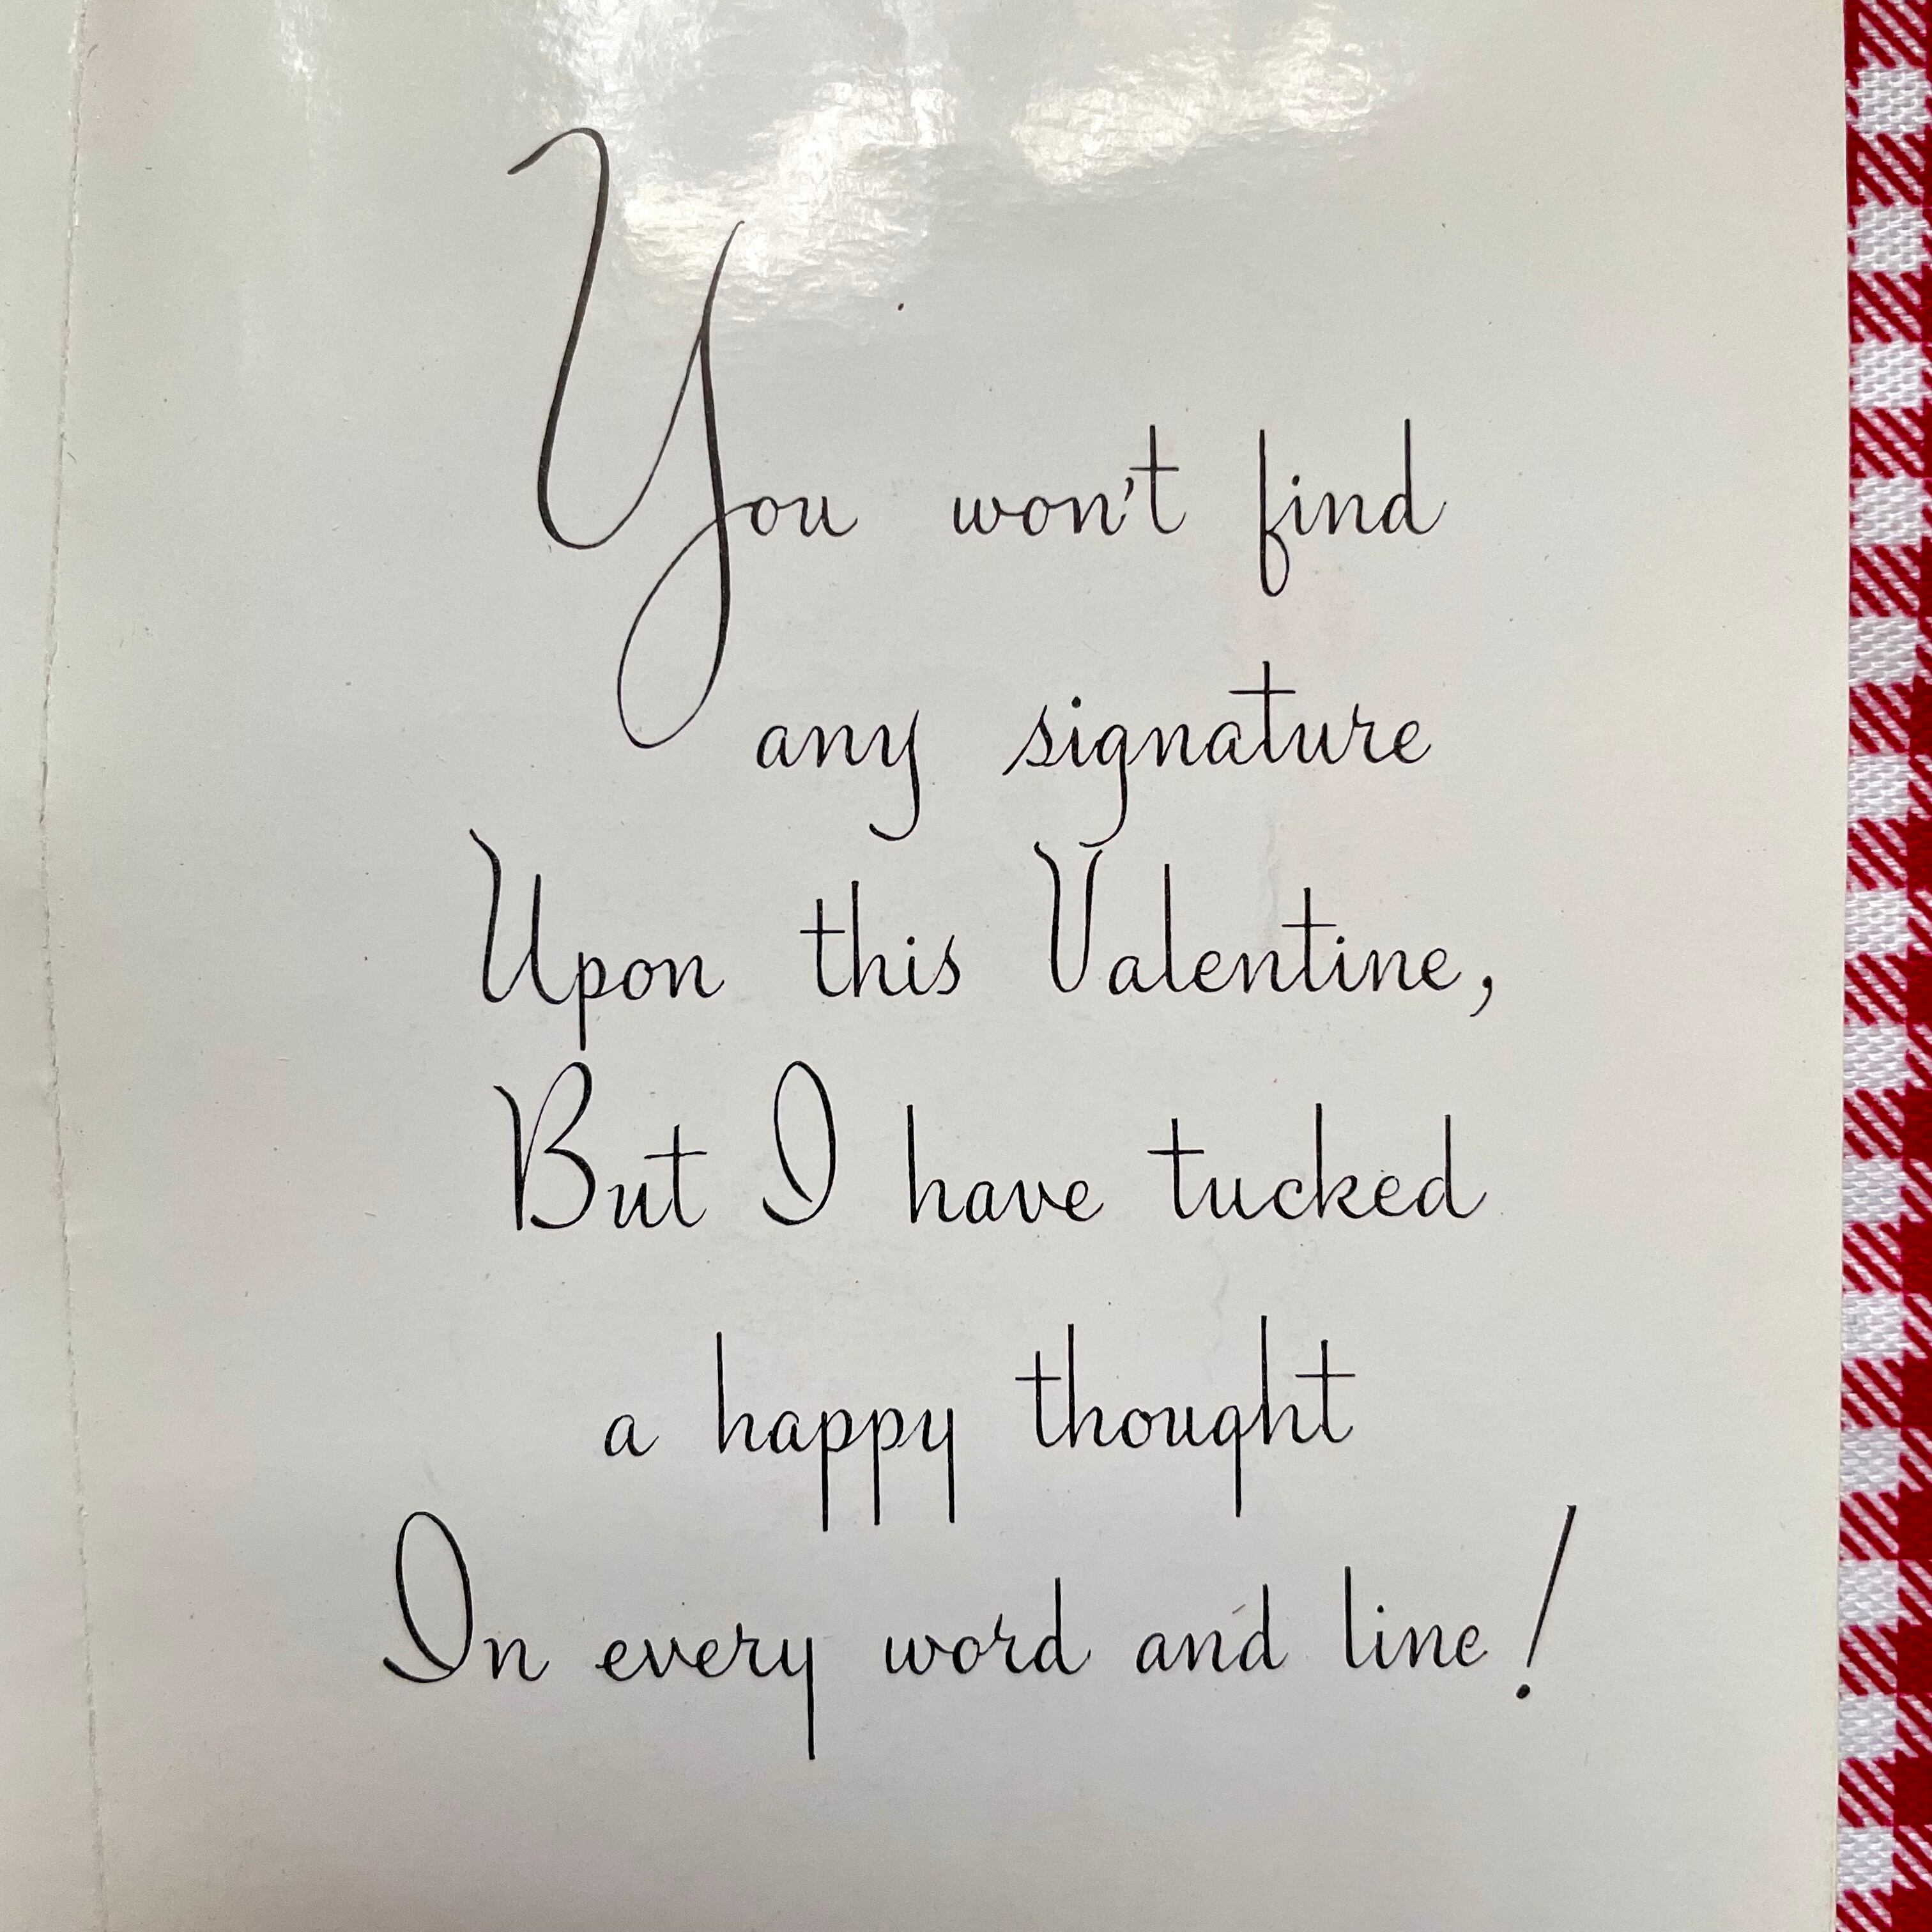 You won't find
any signature
Upon this Valentine,
But I have tucked
a happy thought
In every word and line!